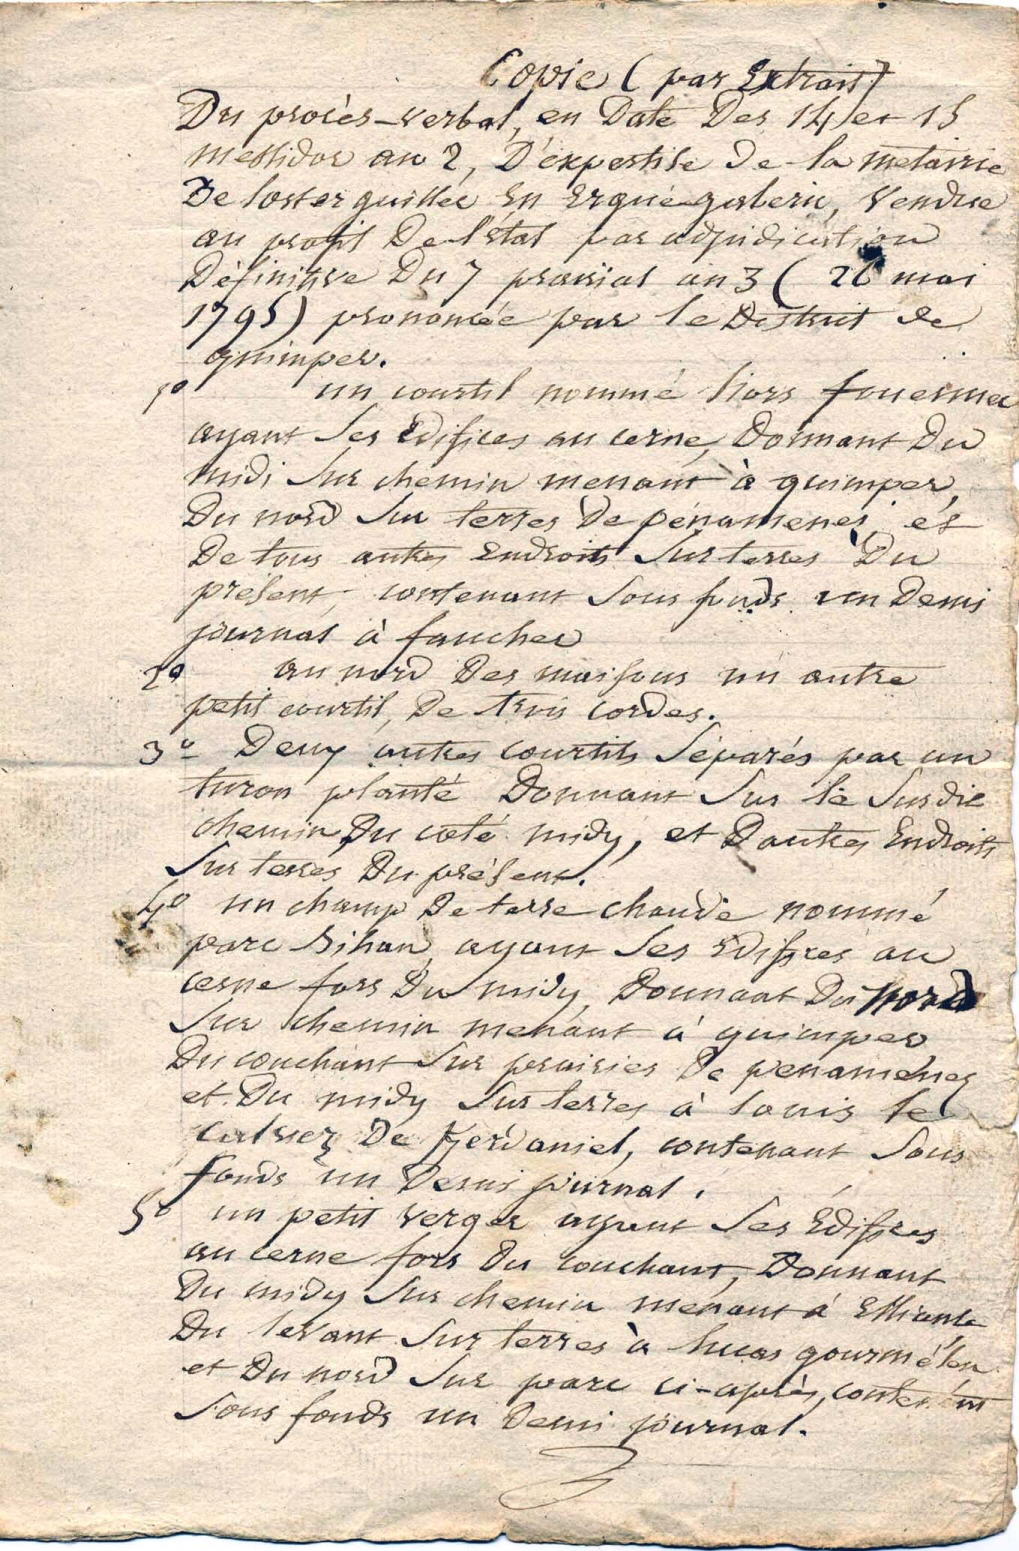 Copie (par Extrait)
Du procès-verbal, en Date Des 14 et 15
messidor an 2, D'éxpertise de la metairie
De losterguillec En Ergué-gaberic, vendue
au profit De l'état par adjudication
Définitive Du 7 prairial an 3 ( 26 mai
1795) prononcée par le District de
quimper.
1º un courtil nommé liors
ayant ses édifices au cerne, Donnant Du
midi sur chemin menant à quimper,
Du nord sur terres De penamenes, et
De tous autres Endroits sur terres Du
présent, contenant sous fonds un Demi
journal à faucher
2º au nord Des maisons un autre
petit courtil, De trois cordes.
3º Deux autres courtils séparés par un
turon planté Donnant sur le susdit
chemin Du coté midy, et D'autres Endroits
sur terres Du présent.
4º un champ De terre chaude nommé
parc bihan, ayant ses édifices au
cerne fors Du midy, Donnant Du nord
sur chemin menant à quimper
Du couchant sur prairies De penaménez
et Du midy sur terres à louis le
De Kerdaniel, contenant sous
fonds un Demi journal.
5º un petit verger ayant ses Edifices
au cerne fors Du couchant, Donnant
Du midy sur chemin menant à Elliant
Du levant sur terres à lucas gourmélen
et Du nord sur parc ci-après, contenant
sous fonds un Demi journal.